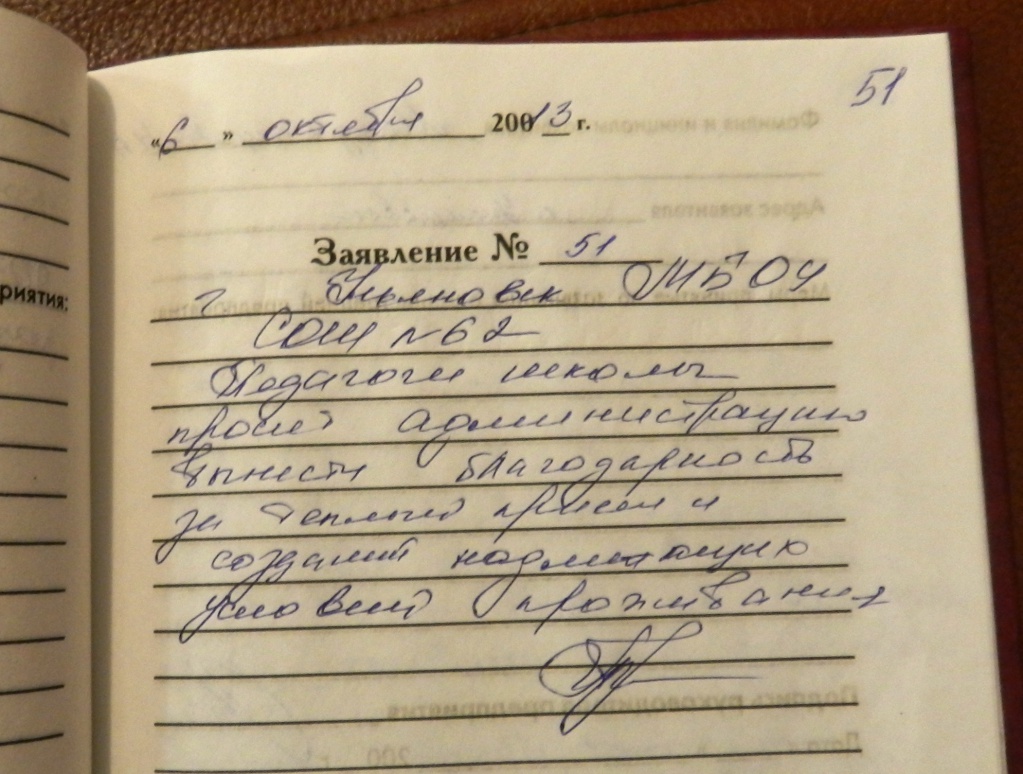 51
«6» октября 20013 г.
Заявление № 51
г Ульяновск МБОУ
СОШ №62
Педагоги школы
просят администрацию
вынести благодарность
за теплый прием и
создание
условий проживания
риятия: